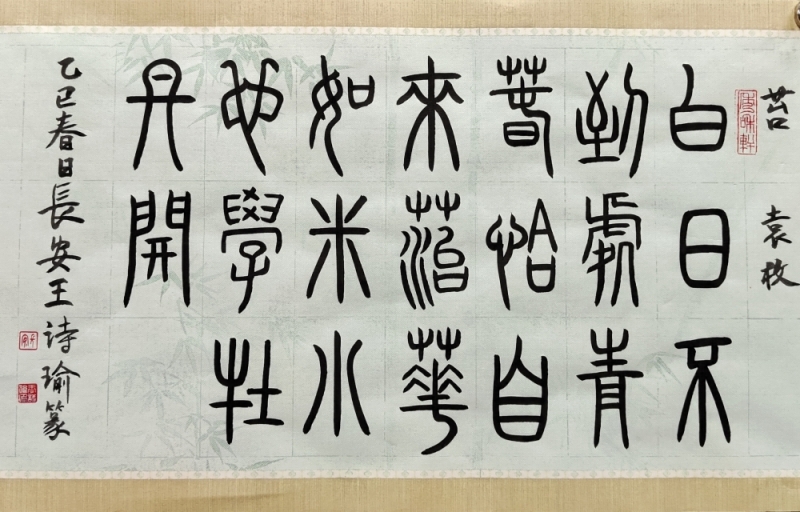 苔 袁枚
白日不
到處青
春恰自
來菭華
如米小
也學牡
丹開
乙巳春日長安王詩瑜篆